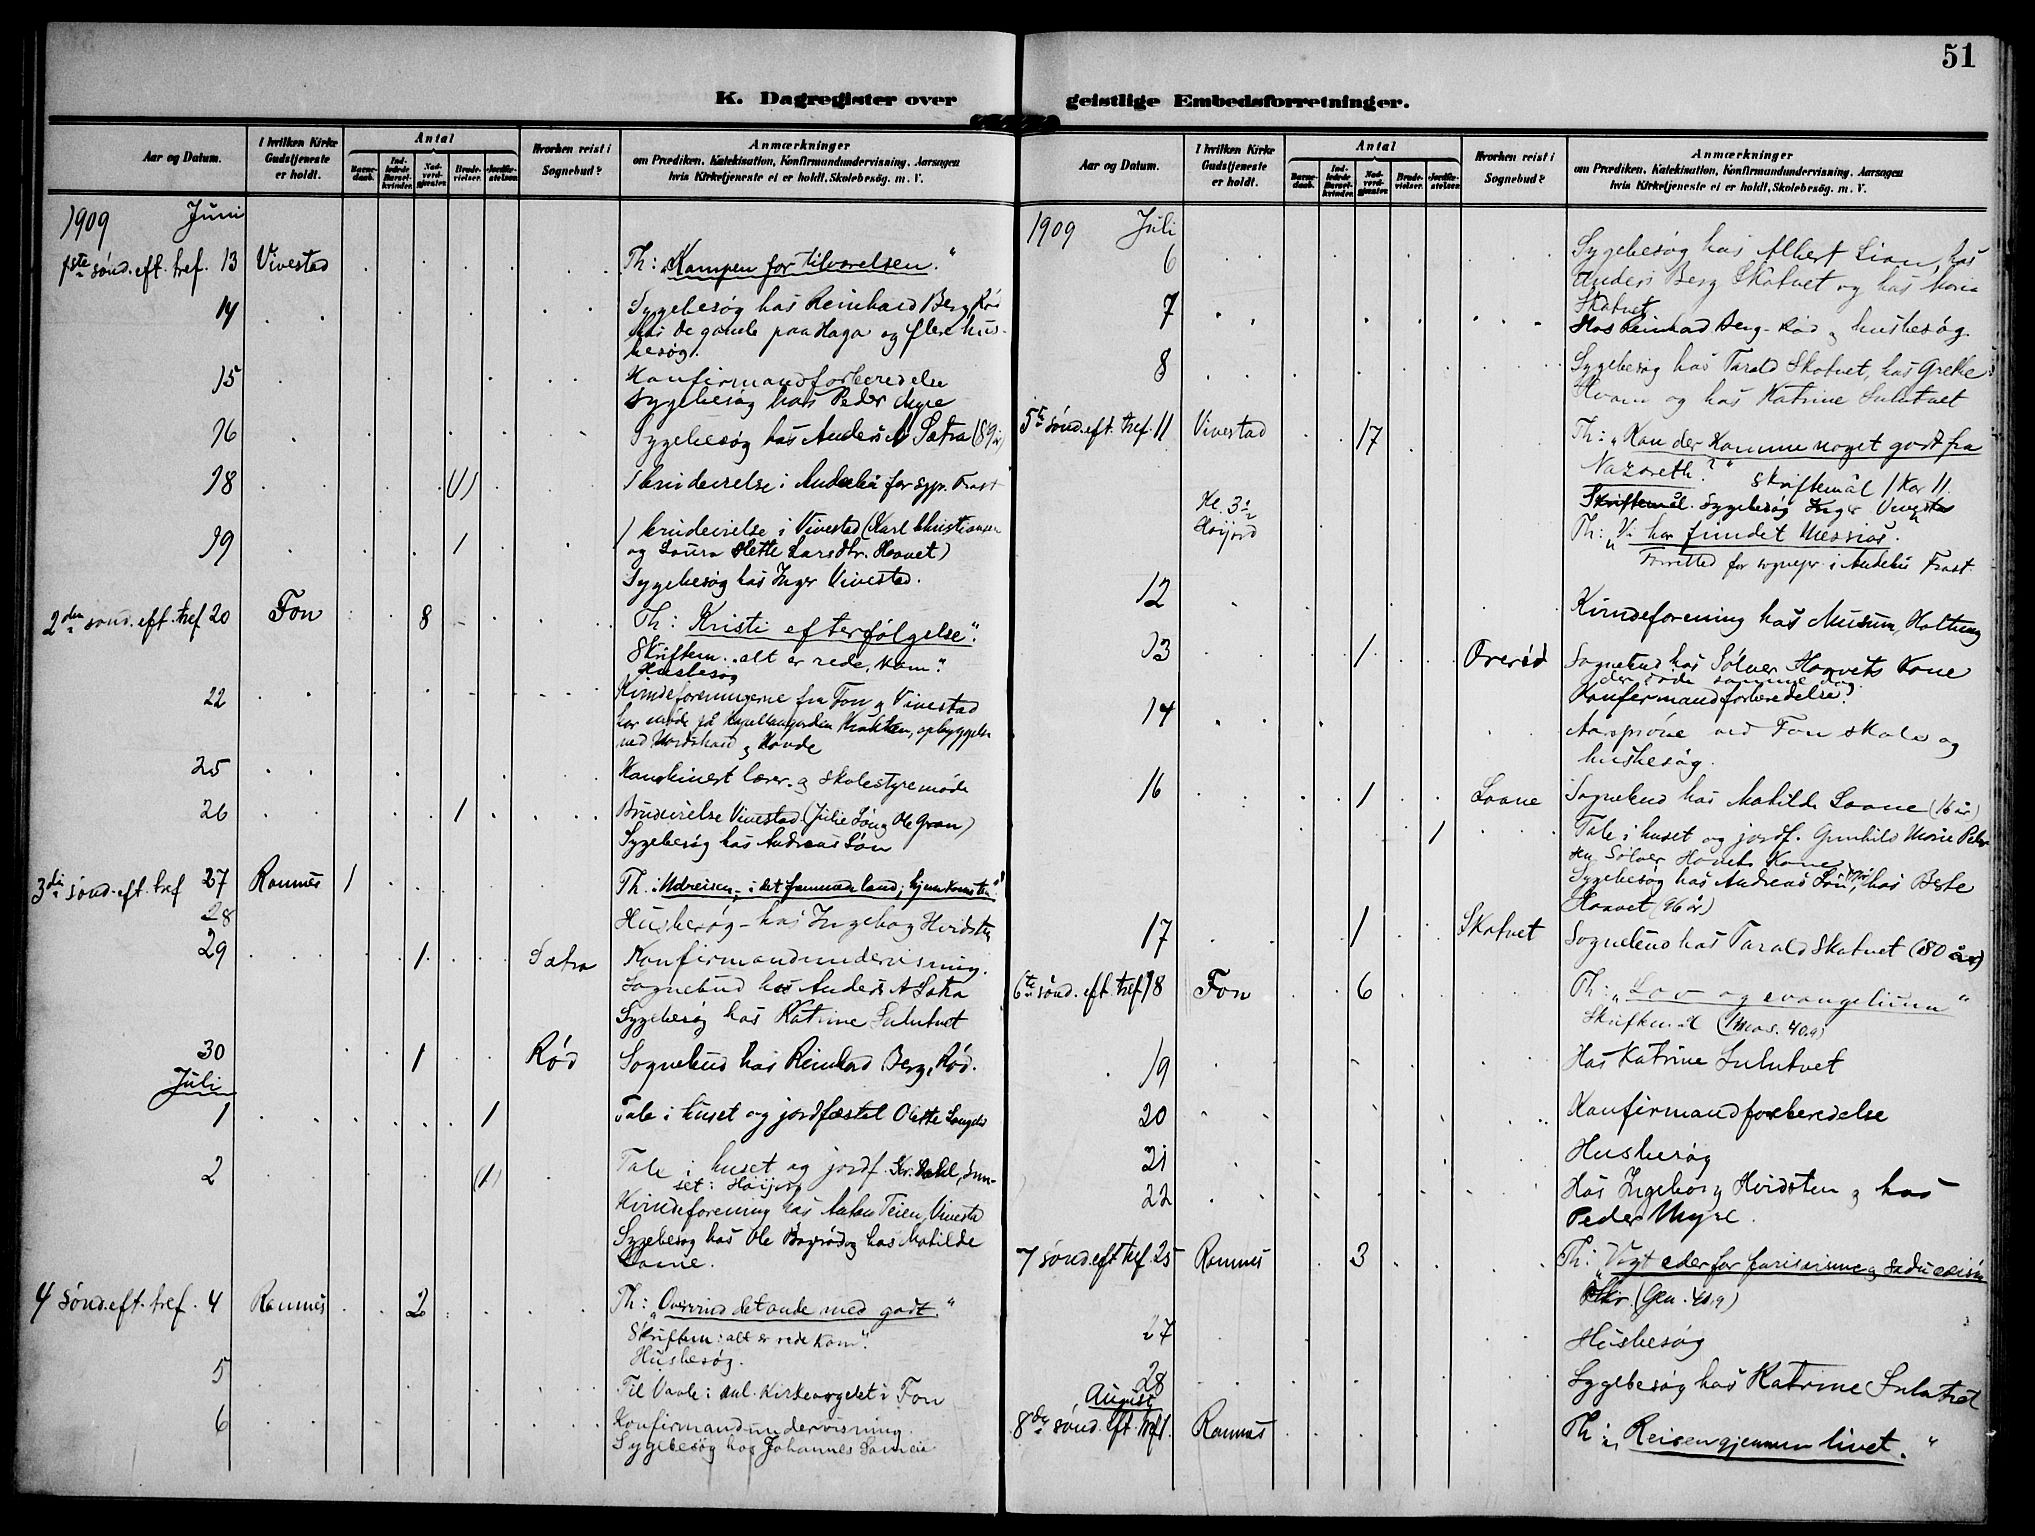 51
K. Dagregister over geistlige Embedsforretninger.
Aar og Datum.
I hvilken Kirke Gudstjeneste er holdt.
Antal
Barnedaab.
Indledede Barselkvinder.
Nadverdgjester.
Brudevielser.
Jordfæstelser.
Hvorhen reist i Sognebud?
Anmærkninger
om Prædiken, Katekisation, Konfirmandundervisning, Aarsagen
hvis Kirketjeneste ei er holdt, Skolebesøg. m. V.
1909 Juni
1ste sønd. eft. tref. 13 Vivestad Th: "Kampen for tilværelsen."
14 Sygebesøg hos Reinhard Berg, Rød
hos de gamle paa Haga og flere hus-
besøg.
15 Konfirmandforberedelse
Sygebesøg hos Peder Myre
16 Sygebesøg hos Anders A Sætra (89 år)
18 (1) 1 brudevielse i Andebu for sgpr. Trast
19 1 1 brudevielse i Vivestad (Karl Christiansen
og Laura Mette Larsdtr. Haavet)
Sygebesøg hos Inger Vivestad.
2den sønd. eft. tref 20 Fon 8 Th: "Kristi efterfølgelse".
Skriftem. "alt er rede, kom".
Husbesøg
22 Kvindeforeningerne fra Fon og Vivestad
har møde på kapellangården Krakken, opbyggelse
ved Nordstrand og Hovde
25 Kombinert lærer- og skolestyremøde
26 1 Brudevielse Vivestad (Julie Løn og Ole Gran)
Sygebesøg hos Andreas Løn
3die sønd. eft. tref 27 Ramnes 1 Th. "Udreisen, i det fremmede land, hjemkomsten".
28 Husbesøg - hos Ingeborg Hvidsten
29 1 Sætra Konfirmandundervisning.
Sognebud hos Anders A Sætra
Sygebesøg hos Katrine Sulutvet
30 1 Rød Sognebud hos Reinhard Berg, Rød.
Juli
1 1 Tale i huset og jordfæstet Olette
2 (1) Tale i huset og jordf. Kr. Dahl,
set: Høijord
Kvindeforening hos Anton Teien, Vivestad
Sygebesøg hos Ole og hos Matilde
Laane.
4 sønd. eft. tref. 4 Ramnes 2 Th: "Overvind det onde med godt"
Skriftem: alt er rede kom".
Husbesøg.
5 Til Vaale: anl. kirkeorgelet i Fon
6 Konfirmandundervisning.
Sygebesøg hos Johannes
K. Dagregister over geistlige Embedsforretninger.
Aar og Datum.
I hvilken Kirke Gudstjeneste er holdt.
Antal
Barnedaab.
Indledede Barselkvinder.
Nadverdgjester.
Brudevielser.
Jordfæstelser.
Hvorhen reist i Sognebud?
Anmærkninger
om Prædiken, Katekisation, Konfirmandundervisning, Aarsagen
hvis Kirketjeneste ei er holdt, Skolebesøg. m. V.
1909 Juli
6 Sygebesøg hos Albert Lian, hos
Anders Berg Skatvet og hos Maria
Skatvet
7 Hos Reinhad Berg - Rød og husbesøg.
8 Sygebesøg hos Tarald Skatvet, hos Grethe
Hvam og hos Katrine Sulutvet
5te sønd. eft. tref. 11 Vivestad 17 Th: "Kan der komme noget godt fra
Nazareth?" Skriftemål 1 Kor 11.
Skriftemål. Sygebesøg Inger Vivestad
Kl. 3½ Høijord Th: "Vi har fundet Messias.
Forretted for sognepr. i Andebu Trast.
12 Kvindeforening hos Musum, Holtung
13 1 Overød Sognebud hos Sølver Haavets kone
der døde samme dag
Konfermandforberedelse.
14 Aarsprøve ved Fon skole og
husbesøg.
16 1 Laane Sognebud hos Matilde Laane (16 år)
1 Tale i huset og jordf. Gunhild Marie Peder
Sølver Hovets kone
Sygebesøg hos Andreas Løn, hos Berte
Haavet (96 år)
17 1 Skatvet Sognebud hos Tarald Skatvet (80 år)
6te sønd. eft. tref. 18 Fon 6 Th: "Lov og evangelium"
Skriftemål (1 Mos. 40.9)
19 Hos Katrine Sulutvet
20 Konfirmandforberedelse
21 Husbesøg
22 Hos Ingeborg Hvidsten og hos
Peder Myre.
7 sønd. eft tref. 25 Ramnes 3 Th: "Vogt eder for
(Gen. 40,9)
27 Husbesøg
28 Sygebesøg hos Katrine Sulutvet
August
8de sønd. eft. tref 1. Ramnes Th: "Reisen gjennem livet."